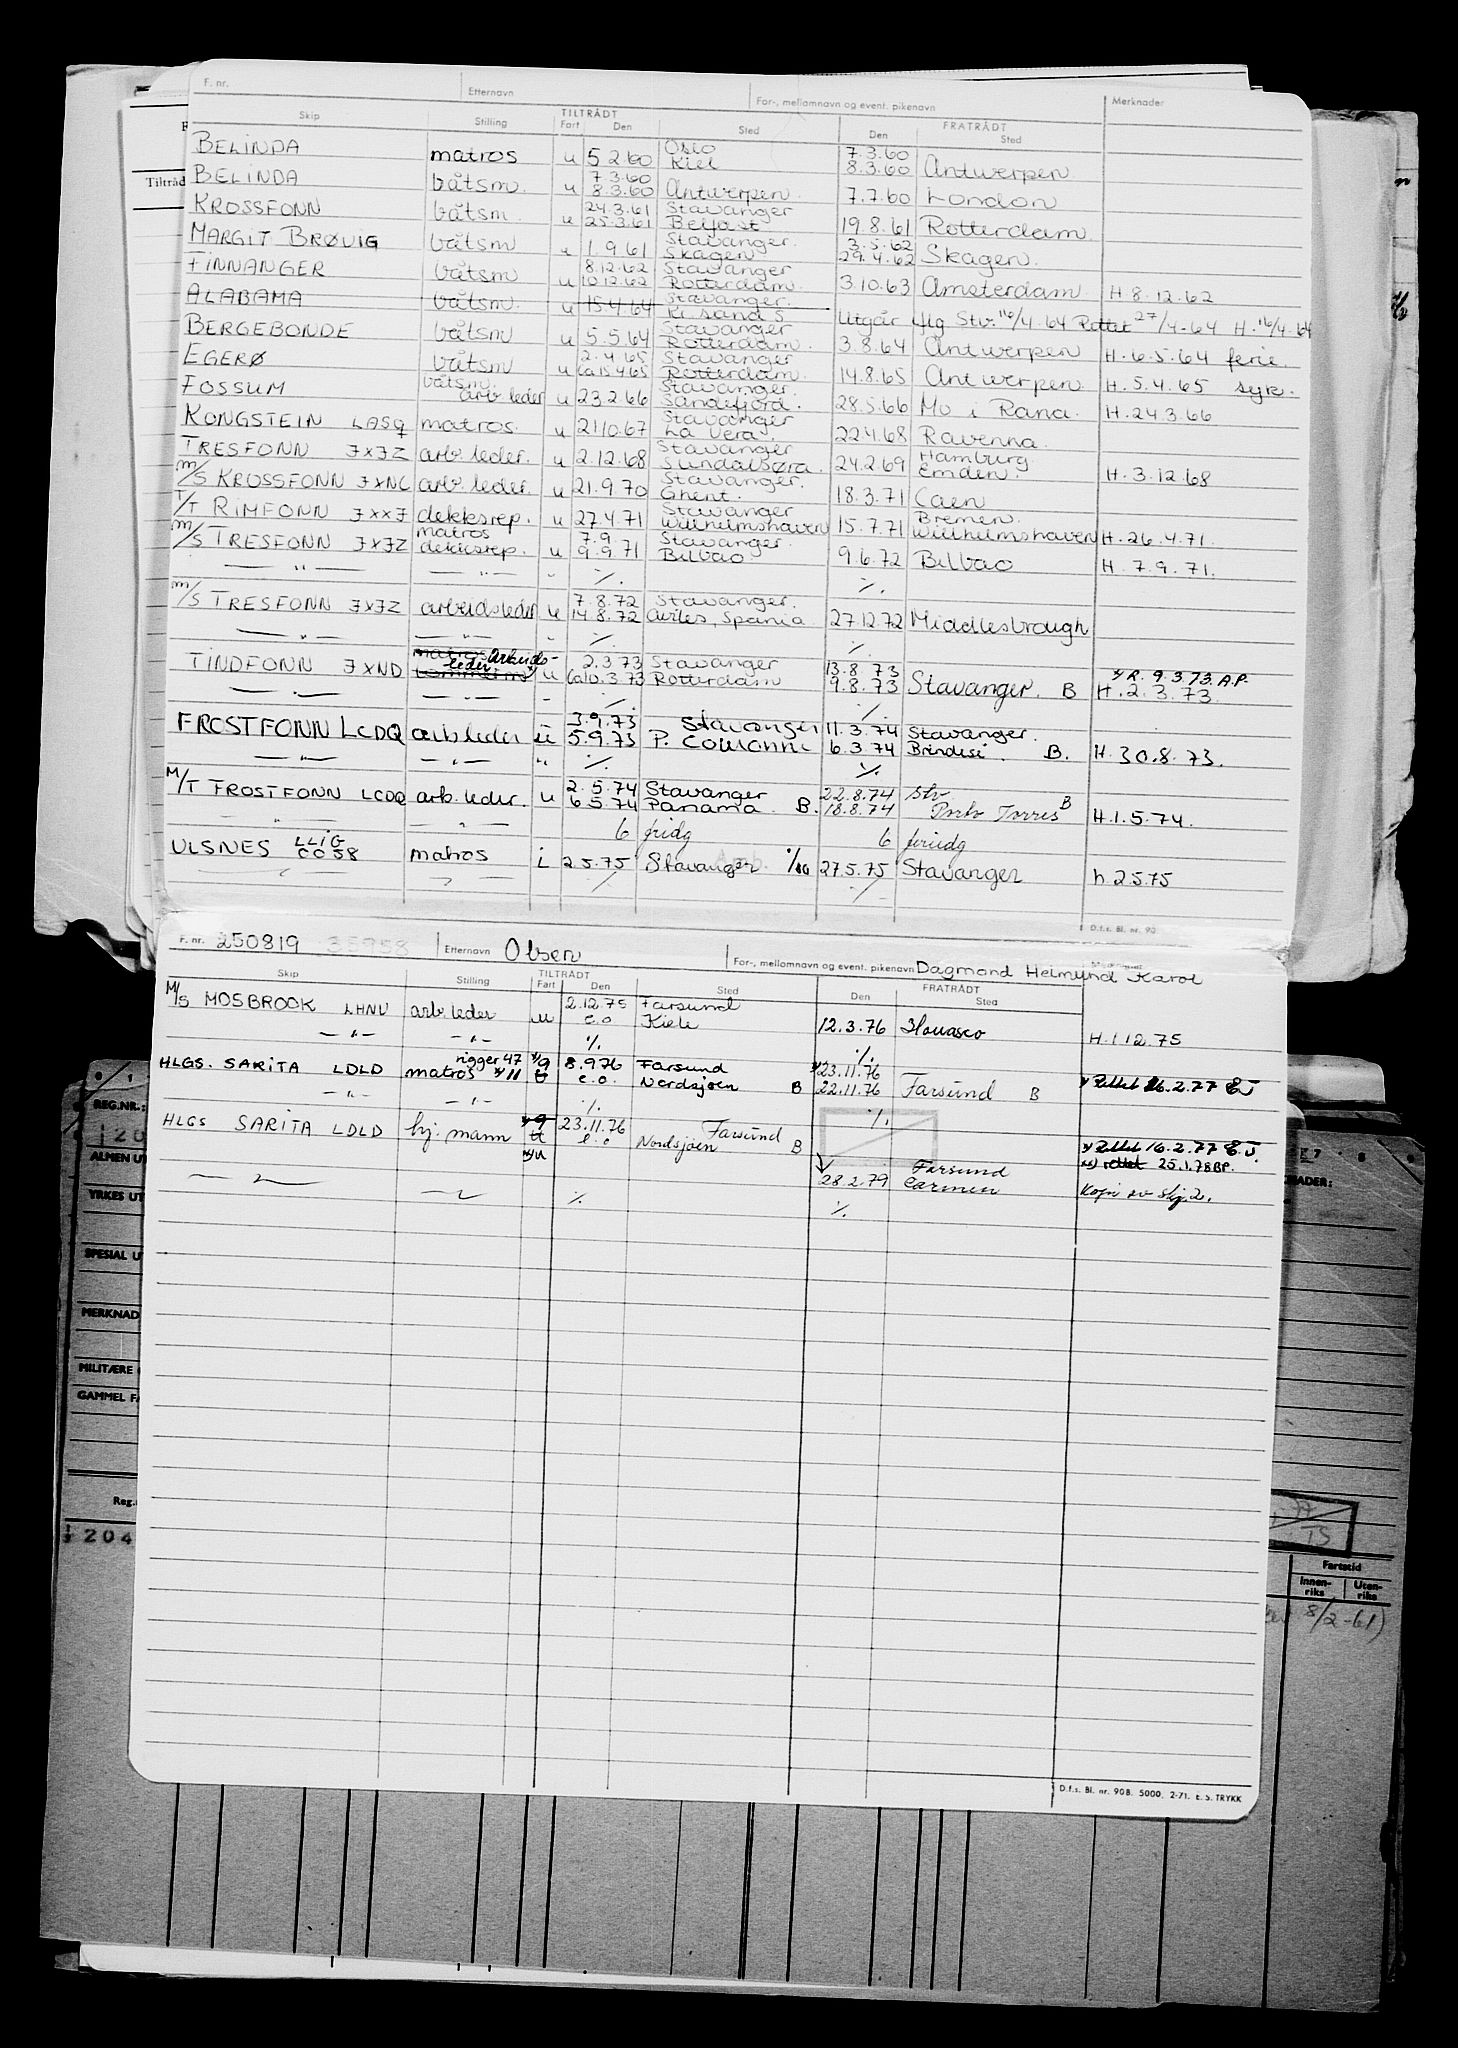 F. nr. Etternavn For-, mellomnavn og event. pikenavn Merknader
Skip Stilling TILTRÅDT Fart Den Sted FRATRÅDT Den Sted
BELINDA matros u 5 2 60 Oslo Kiel 7.3.60 8.3.60 Antwerpen
BELINDA båtsm. u 7.3.60 8.3.60 Antwerpen 7.7.60 London
KROSSFONN båtsm. u 24.3.61 25.3.61 Stavanger Belfast 19.8.61 Rotterdam
MARGIT BRØVIG båtsm u 1.9.61 Stavanger. Skagen 3.5.62 29.4.62 Skagen.
FINNANGER båtsm u 8.12.62 10.12.62 Stavanger Rotterdam. 3.10.63 Amsterdam H 8.12.62
ALABAMA båtsm. u 15.4.64 Stavanger. Kr.sand S Utgår iflg Stv. 16/4-64 Rettet 27/4-64 H. 16/4-64
BERGEBONDE båtsm u 5.5.64 Stavanger Rotterdam. 3.8.64 Antwerpen H. 6.5.64 ferie.
EGERØ båtsm u 2.4.65 ca 15.4.65 Stavanger Rotterdam 14.8.65 Antwerpen H. 5.4.65 syk.
FOSSUM båtsm. arb leder u 23.2.66 Stavanger Sandefjord. 28.5.66 Mo i Rana. H. 24.3.66
KONGSTEIN LASQ matros. u 21.10.67 Stavanger La Vera. 22.4.68 Ravenna
TRESFONN JXJZ arb. leder. u 2.12.68 Stavanger Sundalsøra. 24.2.69 Hamburg Emden. H. 3.12.68
M/S KROSSFONN JXNC arb. leder. u 21.9.70 Stavanger. Ghent. 18.3.71 Caen
T/T RIMFONN JXXJ dekksrep. u 27.4.71 Stavanger Wilhelmshaven 15.7.71 Bremen. Wilhelmshaven H. 26.4.71.
M/S TRESFONN JXJZ matros dekksrep. u 7.9. 9.9.71 Stavanger. Bilbao 9.6.72 Bilbao H. 7.9.71.
— " — — " — " %. %.
M/S TRESFONN JXJZ arbeidsleder u 7.8.72 14.8.72 Stavanger. Aviles, Spania. 27.12.72 Middlesbrough
— " — — " — - %. %.
TINDFONN JXND matros Arbeids- leder u 2.3.73 ca 10.3.73 Stavanger Rotterdam 13.8.73 9.8.73 Stavanger. B x/ R. 9.3.73. A.P. H. 2.3.73.
— " — — " — - %. %.
FROSTFONN LCDQ arb leder u 3.9.73 5.9.73 Stavanger 11.3.74 6.3.74 Stavanger. Brindisi. B. H. 30.8.73.
— " — — " — " %. %.
M/T FROSTFONN LCDQ arb. leder. u 2.5.74 6.5.74 Stavanger Panama. B. 22.8.74 18.8.74 Stv Porto Torres B H. 1.5.74.
— " — — " — 6 fridg 6 friidg
ULSNES LLIG CO 58 matros i 2.5.75 Stavanger 27.5.75 Stavanger h. 2.5.75
%. %.
D.f.s. Bl. nr. 90
F. nr. 250819 35958 Etternavn Olsen For-, mellomnavn og event. pikenavn Dagmond Helmund Karol
Skip Stilling TILTRÅDT Fart Den Sted FRATRÅDT Den Sted
M/S MOSBROOK LHNU arb. leder u 2.12.75 c.o Farsund Kiel 12.3.76 H. 1.12.75
— " — — " — %. %.
HLGS. SARITA LDLD rigger 47 matros x/ 11 8.9.76 c.o. Farsund Nordsjøen B x/ 23.11.76 22.11.76 Farsund B x/ Rettet 16.2.77 EJ
— " — — " — %. %.
HLGS SARITA LDLD hj. mann 23.11.76 c.o Farsund Nordsjøen B x/ Rettet 16.2.77 EJ.
xx) rettet 25.1.78 BP.
28.2.79 Farsund Carmen Kopi av Skj. 2.
%. %.
D.f.s. Bl. nr. 90B. 5000. 2-71. E. S. TRYKK
Tiltråd
REG.NR.:
120
ALMEN UT
YRKES UT
SPESIAL U
MERKNAD
MILITÆRE
GAMMEL F
Reg.
204
Fartstid
Innen- riks Uten- riks
8/2-61)